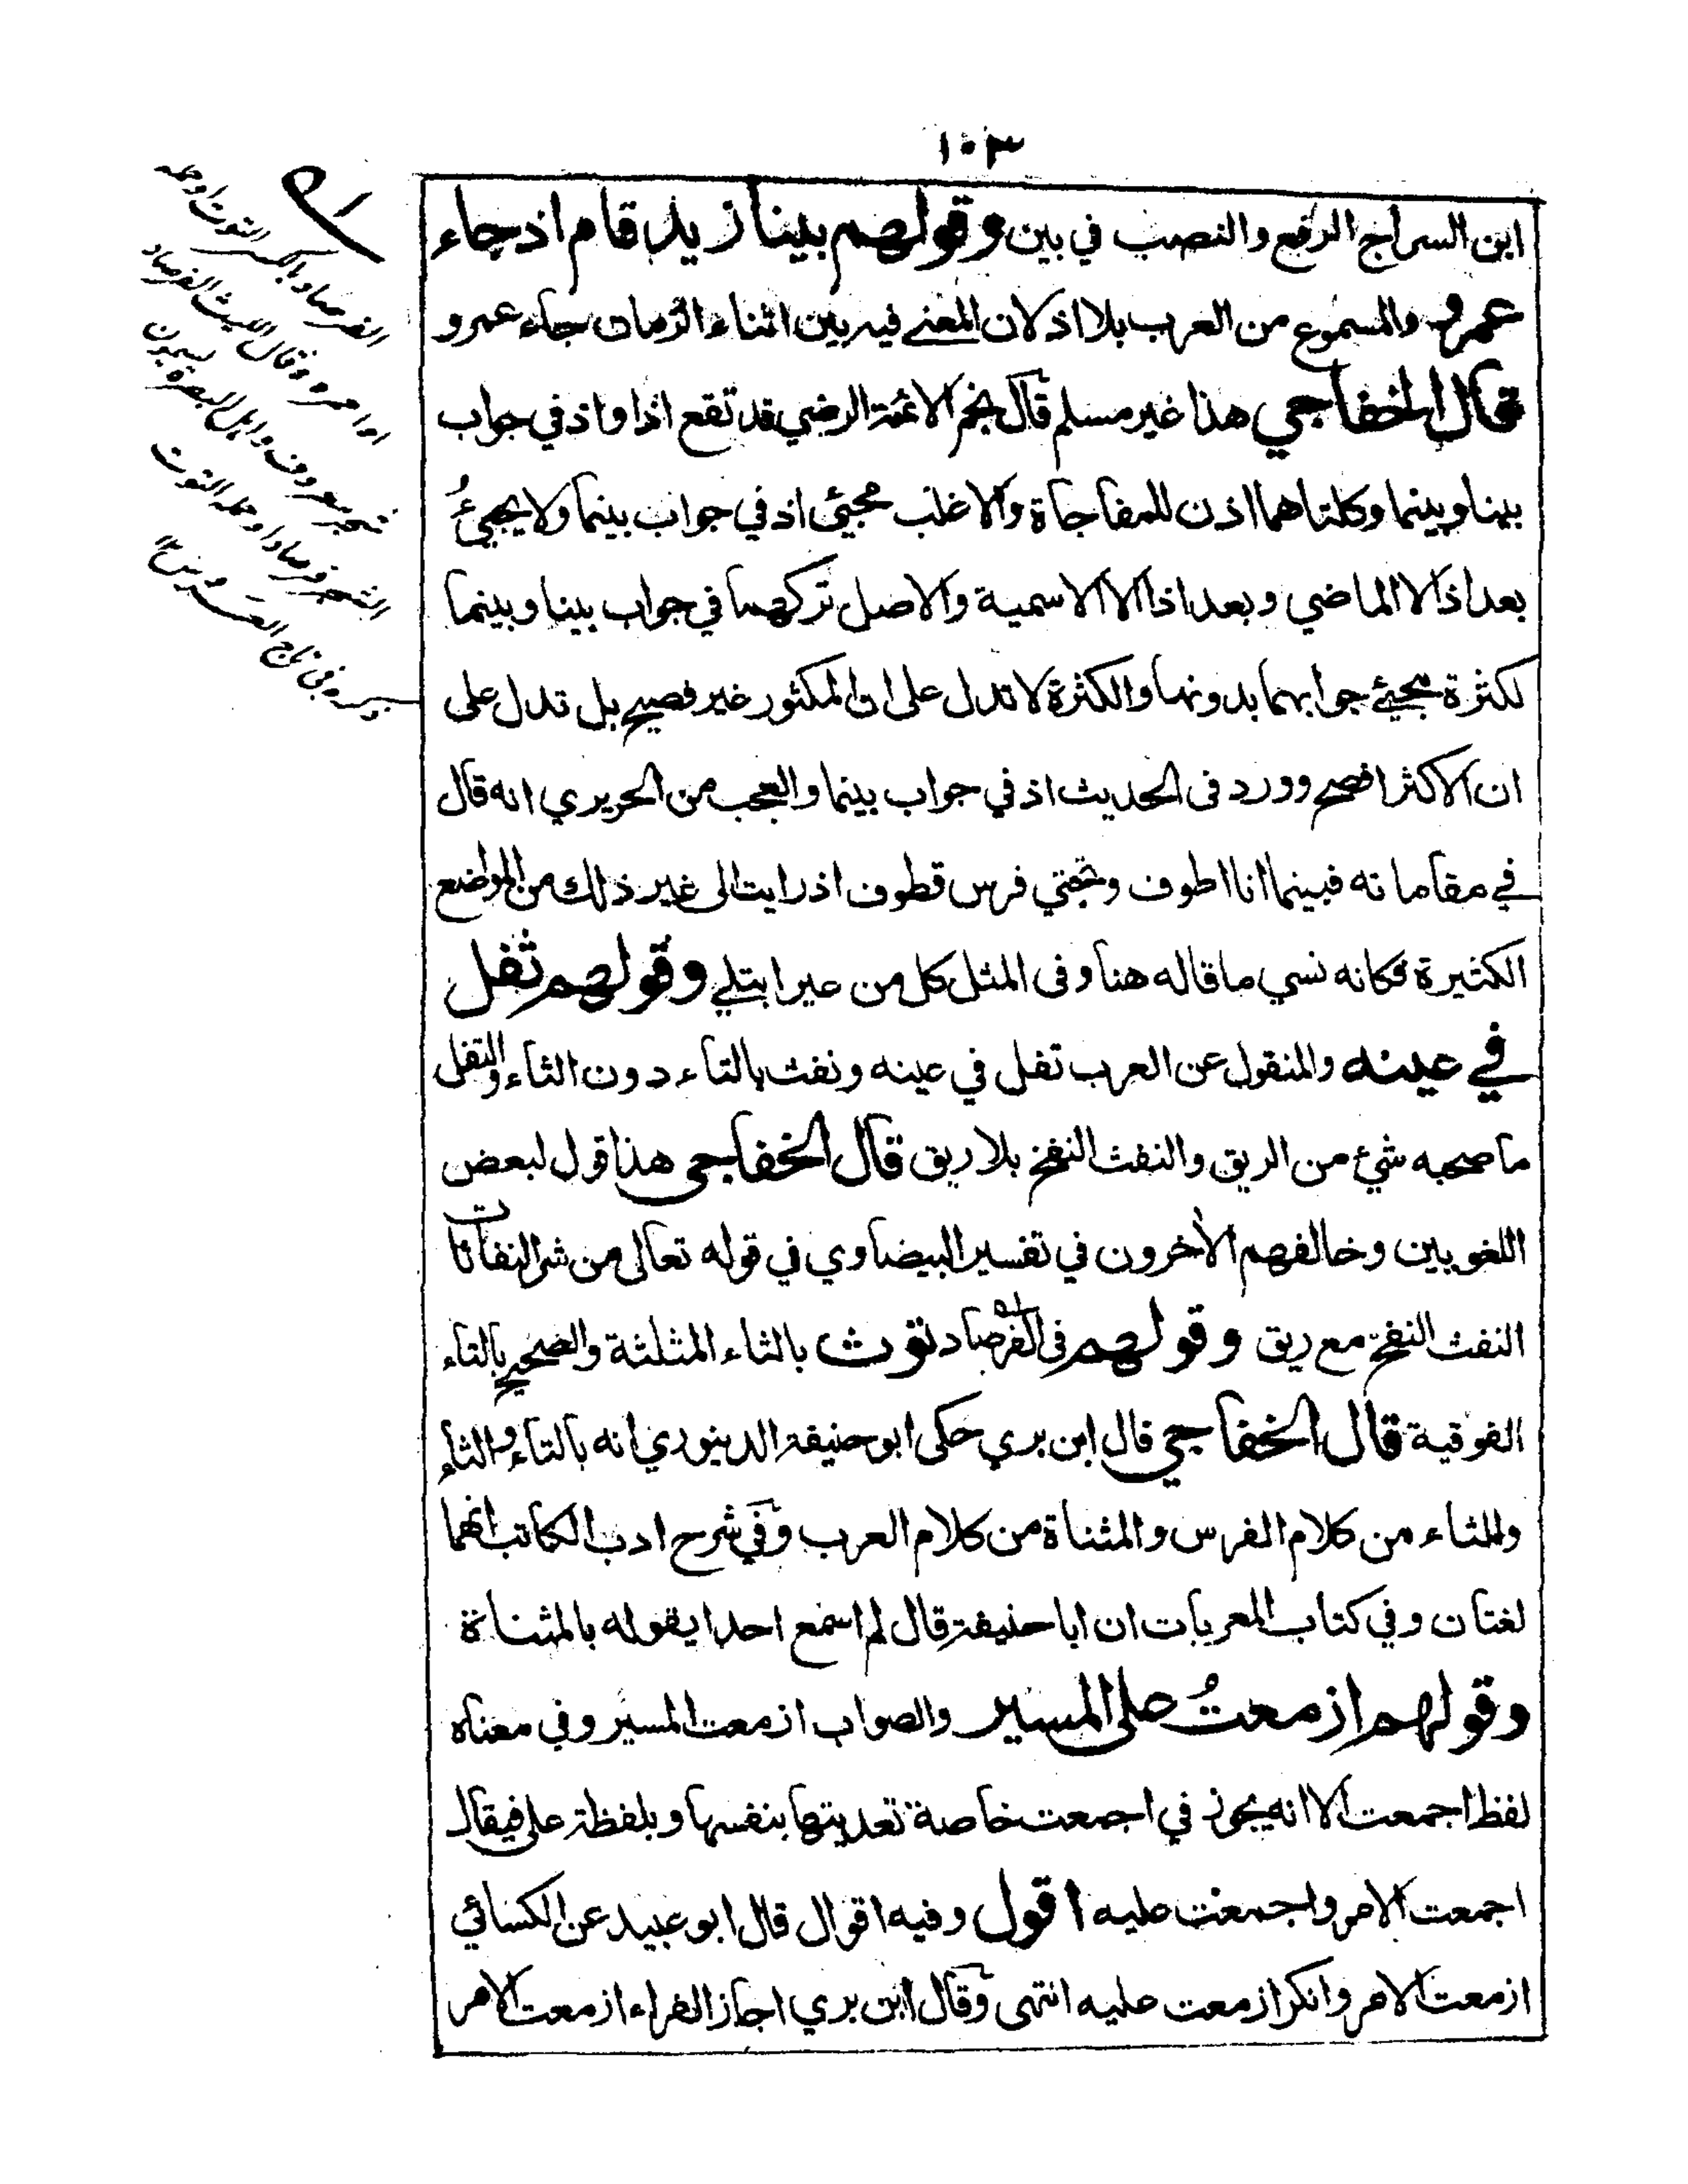 ١٠٣
ابن السراج الرفع والنصب في بين وقولهم بينا زيد قام اذ جاء
عمرو والمسموع من العرب بلا اذ لان المعنى فيه بين اثناء الزمان جاء عمرو
قال الخفاجي هذا غير مسلم قال نجم الائمة الرضي قد تقع اذا واذ في جواب
بينا وبينما وكلتاهما اذن للمفاجاة والاغلب مجيئ اذ في جواب بينما ولا يجيئُ
بعد اذ الا الماضي وبعد اذا الا الاسمية والاصل تركهما في جواب بينا وبينما
لكثرة مجيئ جوابهما بدونهما والكثرة لا تدل على ان المكثور غير فصيح بل تدل على
ان الاكثر افصح وورد في الحديث اذ في جواب بينما والعجب من الحريري انه قال
في مقاماته فبينما انا اطوف وتحتي فرس قطوف اذ رايت الى غير ذلك من المواضع
الكثيرة فكانه نسي ما قاله هنا وفي المثل كل من عير ابتلي وقولهم ثفل
في عينه والمنقول عن العرب تفل في عينه ونفث بالتاء دون الثاء والتفل
ما صحبه شيء من الريق والنفث النفخ بلا ريق قال الخفاجي هذا قول لبعض
اللغويين وخالفهم الأخرون في تفسير البيضاوي في قوله تعالى من شر النفاثات
النفث النفخ مع ريق وقولهم في الفرصاد توث بالثاء المثلثة والصحيح بالتاء
الفوقية قال الخفاجي قال ابن بري حكى ابو حنيفة الدينوري انه بالتاء والثاء
والثاء من كلام الفرس والمثناة من كلام العرب وفي شرح ادب الكاتب انهما
لغتان وفي كتاب المعربات ان ابا حنيفة قال لم اسمع احدا يقوله بالمثناة
وقولهم ازمعتُ على المسير والصواب ازمعت المسير وفي معناه
لفظ اجمعت الا انه يجوز في اجمعت خاصة تعديتها بنفسها وبلفظة على فيقال
اجمعت الامر واجمعت عليه اقول وفيه اقوال قال ابو عبيد عن الكسائي
ازمعت الامر وانكر ازمعت عليه انتهى وقال ابن بري اجاز الفراء ازمعت الامر
الفرصاد بالكسر التوت او حمله
او احمره وقال الليث الفرصاد
شجر معروف واهل البصرة يسمون
الشجر فرصادا وحمله التوت